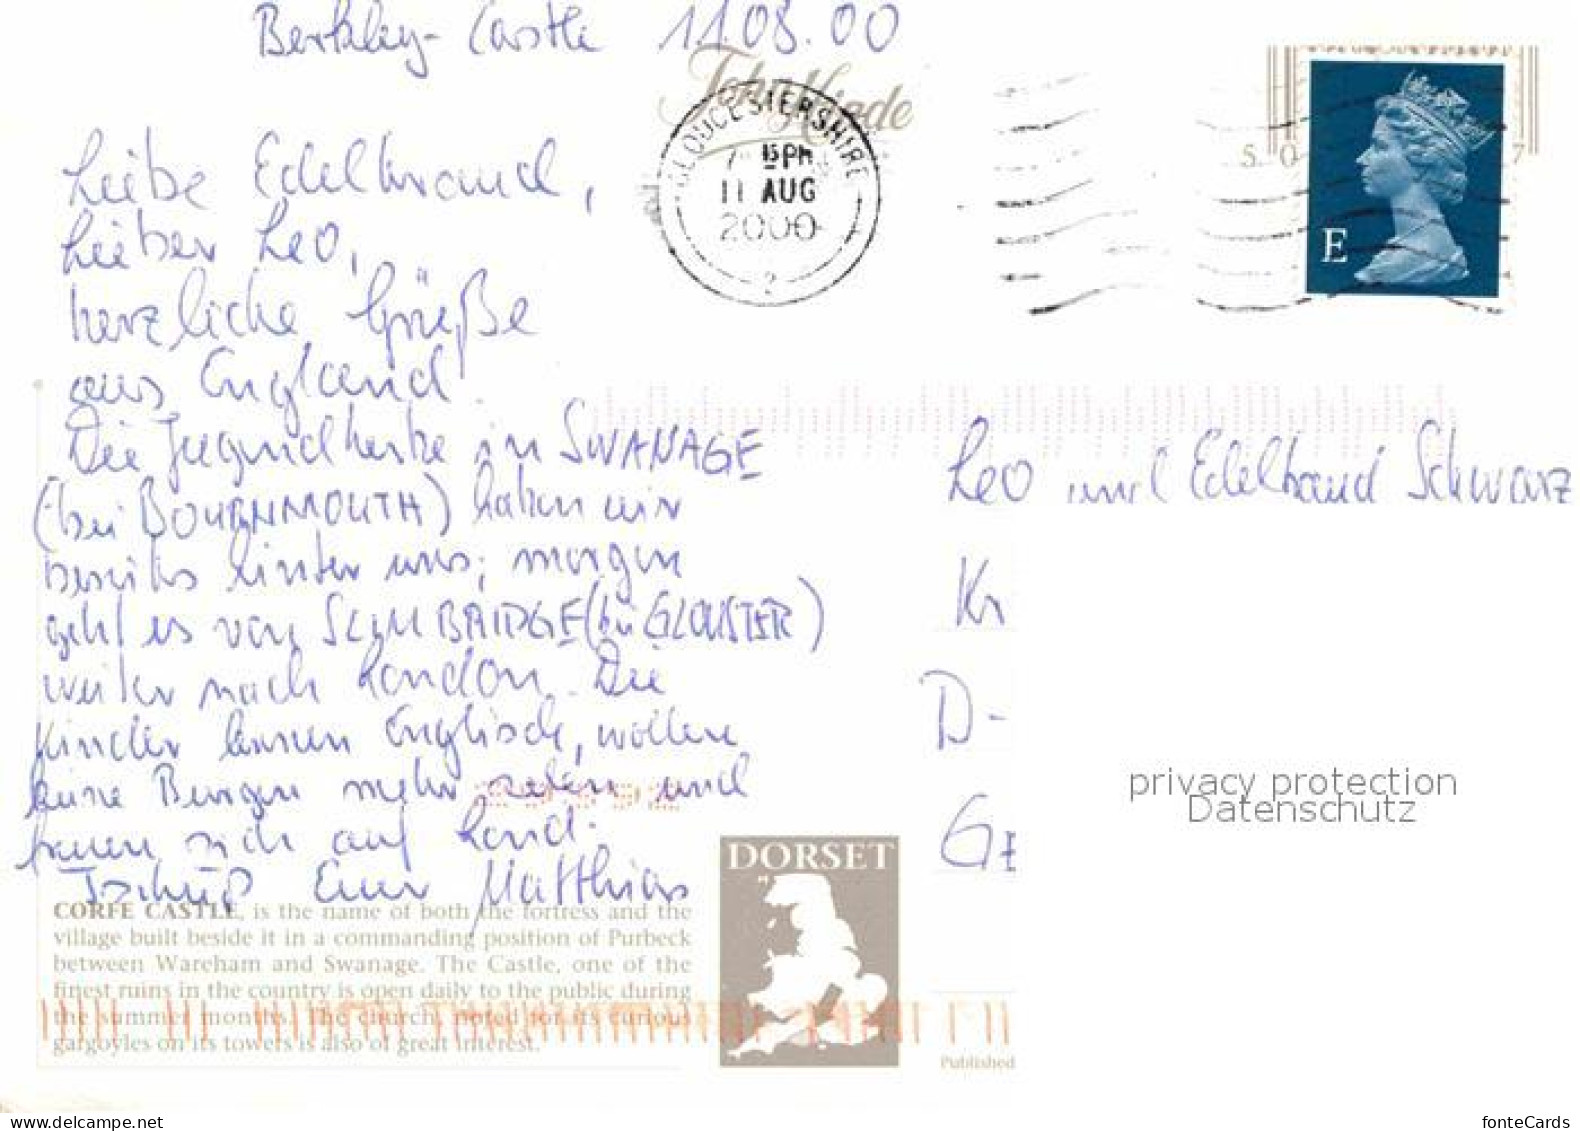 Berkley-Castle 11.08.00
John Hinde
GLOUCESTERSHIRE
15PM
11 AUG
2000
2
E
Liebe Edeltraud,
Lieber Leo,
herzliche Grüße
aus England.
Die Jugendherberge in SWANAGE
(bei BOURNMOUTH) haben wir
bereits hinter uns; morgen
geht es von SLIMBRIDGE (bei GLOUSTER)
weiter nach London. Die
Kinder lernen Englisch, wollen
keine Burgen mehr sehen und
freuen sich auf Lond.
Tschüß Euer Matthias
Leo und Edeltraud Schwarz
Kr
D-
GE
privacy protection
Datenschutz
DORSET
CORFE CASTLE, is the name of both the fortress and the
village built beside it in a commanding position of Purbeck
between Wareham and Swanage. The Castle, one of the
finest ruins in the country is open daily to the public during
the summer months. The church, noted for its curious
gargoyles on its towers is also of great interest.
Published
www.delcampe.net
fonteCards